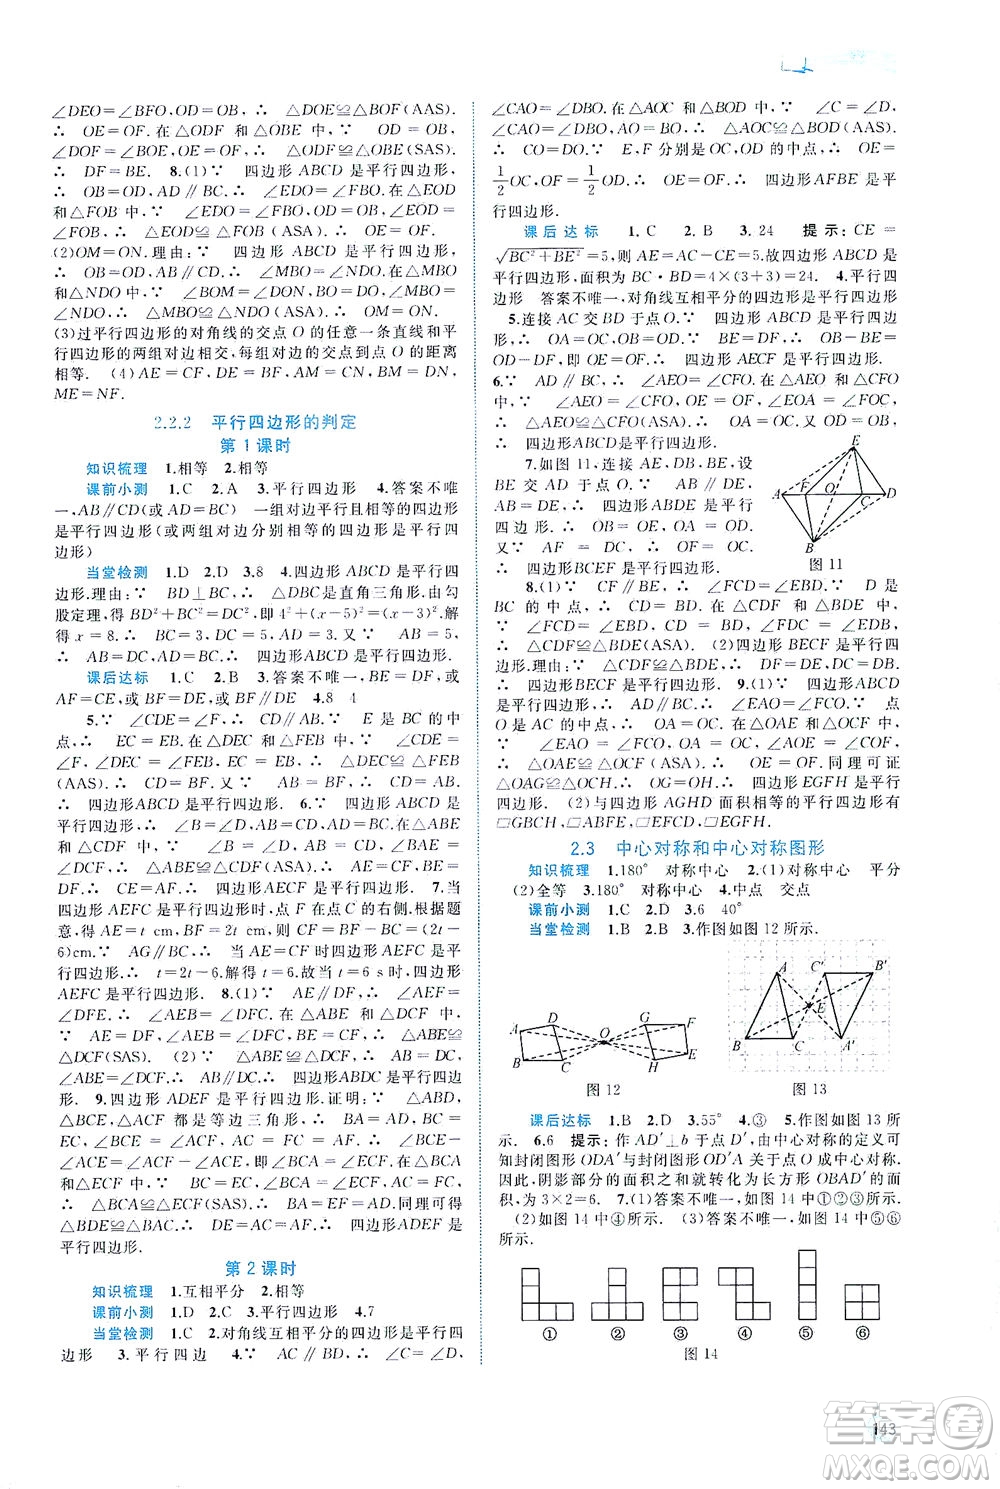 ∠DEO=∠BFO,OD=OB,∴ △DOE≌△BOF(AAS).
∴ OE=OF.在△ODF 和△OBE 中,∵ OD=OB,
∠DOF=∠BOE,OF=OE,∴ △ODF≌△OBE(SAS).
∴ DF=BE. 8.(1)∵ 四边形 ABCD 是平行四边形,
∴ OB=OD,AD∥BC.∴ ∠EDO=∠FBO.在△EOD
和△FOB 中,∵ ∠EDO=∠FBO,OD=OB,∠EOD=
∠FOB,∴ △EOD≌△FOB(ASA).∴ OE=OF.
(2)OM=ON.理由:∵ 四边形 ABCD 是平行四边形,
∴ OB=OD,AD∥BC.∴ ∠MBO=∠NDO.在△MBO
和△NDO 中,∵ ∠BOM=∠DON,OB=OD,∠MBO=
∠NDO,∴ △MBO≌△NDO(ASA).∴ OM=ON.
(3)过平行四边形的对角线的交点 O 的任意一条直线和平
行四边形的两组对边相交,每组对边的交点到点 O 的距离
相等. (4)AE=CF,DE=BF,AM=CN,DN=BM,
ME=NF.
2.2.2 平行四边形的判定
第 1 课时
知识梳理 1.相等 2.相等
课前小测 1.C 2.A 3.平行四边形 4.答案不唯
一,AB∥CD(或AD=BC) 一组对边平行且相等的四边形
是平行四边形(或两组对边分别相等的四边形是平行四
边形)
当堂检测 1.D 2.D 3.8 4.四边形 ABCD 是平行四
边形.理由:∵ BD⊥BC,∴ △BDC 是直角三角形.由勾
股定理,得 BD²+BC²=DC²,即 4²+(x-5)²=(x-3)².解
得 x=8.∴ BC=3,DC=11-8=3.又∵ AB=5,
∴ AB=DC,AD=BC.∴ 四边形ABCD 是平行四边形.
课后达标 1.C 2.B 3.答案不唯一,如BE=DF,或
AF=CE,或 BF=DE,或 BF∥DE 4.8 4
5.∵ ∠CDE=∠F,∴ CD∥BF.∵ E 是 BC 的中
点,∴ EC=EB.在△DEC 和△FEB 中,∵ ∠CDE=
∠F,∠DEC=∠FEB,EC=EB,∴ △DEC≌△FEB
(AAS).∴ CD=BF.又∵ AB=BF,∴ CD=AB.
∴ 四边形ABCD 是平行四边形. 6.∵ 四边形ABCD 是
平行四边形,∴ ∠B=∠D,AB=CD.又∵ ∠BAE=
∠DCF,∴ △ABE≌△CDF(ASA).∴ BE=DF,AE=
CF.∴ AF=EC.∴ 四边形AECF 是平行四边形. 7.当
四边形 AEFC 是平行四边形时,点 F 在点 C 的右侧.根据题
意,得 AE=t cm,BF=2t cm,则 CF=BF-BC=(2t-
6)cm.∵ AG∥BC,∴ 当 AE=CF 时四边形 AEFC 是平
行四边形.∴ t=2t-6.解得 t=6.∴ 当 t=6 s 时,四边形
AEFC 是平行四边形. 8.(1)∵ AE∥DF,∴ ∠AEF=
∠DFE.∴ ∠AEB=∠DFC.在△ABE 和△DCF 中,
∵ AE=DF,∠AEB=∠DFC,BE=CF,∴ △ABE≌
△DCF(SAS). (2)∵ △ABE≌△DCF,∴ AB=DC,
∠ABE=∠DCF.∴ AB∥DC.∴ 四边形 ABDC 是平行四
边形. 9.四边形 ADEF 是平行四边形.证明:∵ △ABD,
△BCE,△ACF 都是等边三角形,∴ BA=AD,BC=BE,
∠ABD=∠EBC=60°.∴ ∠ABD-∠ABE=∠EBC-
∠ABE,即 ∠DBE=∠ABC.∴ △BDE≌△BAC(SAS).
∴ DE=AC=AF.同理可证△ECF≌△BCA,∴ EF=BA=AD.
∴ △BCA≌△BDE≌△ECF.
∴ DE=AC=AF.∴ 四边形ADEF 是
平行四边形.
第 2 课时
知识梳理 1.互相平分 2.相等
课前小测 1.D 2.C 3.平行四边形 4.7
当堂检测 1.C 2.对角线互相平分的四边形是平行四
边形 3.平行四边 4.∵ AC∥BD,∴ ∠C=∠D,
∠CAO=∠DBO.在△AOC 和△BOD 中,∵ ∠C=∠D,
∠CAO=∠DBO,AO=BO,∴ △AOC≌△BOD(AAS).
∴ CO=DO.∵ E,F 分别是 OC,OD 的中点,∴ OE=
1/2 OC,OF=1/2 OD.∴ OE=OF.∴ 四边形 AFBE 是平
行四边形.
课后达标 1.C 2.B 3.24 提示:CE=
√BC²+BE²=5,则 AE=CE=5.故四边形 ABCD 是平
行四边形,面积为 BC·BD=4×(3+3)=24. 4.平行四
边形 答案不唯一,对角线互相平分的四边形是平行四边形
5.连接 AC 交 BD 于点 O.∵ 四边形 ABCD 是平行四边
形,∴ OA=OC,OB=OD.∵ BE=DF,∴ OB-BE=
OD-DF,即 OE=OF.∴ 四边形 AECF 是平行四边形.
6.∵ AD∥BC,∴ ∠EAO=∠CFO.在△AOE 和△COF
中,∵ OE=OF,∠EOA=∠FOC,∠EAO=∠CFO,
∴ △AOE≌△COF(ASA).∴ OA=OC.又∵ OD=OB,
∴ 四边形ABCD是平行四边形.
7.如图 11,连接 AE,DB,BE,设
AD 与 BE 交于点 O.∵ 四边形
ABDE 是平行四边形,∴ OB=OE,
OA=OD.又∵ AF=DC,∴ OF=OC.∴ 四边形BCEF 是平行四边形.
图 11
8.(1)∵ CF∥BE,∴ ∠FCD=∠EBD.∵ D 是
BC 的中点,∴ CD=BD.在△CDF 和△BDE 中,
∵ ∠FCD=∠EBD,CD=BD,∠CDF=∠BDE,
∴ △CDF≌△BDE(ASA). (2)四边形 BECF 是平行四
边形.理由:∵ △CDF≌△BDE,∴ DF=DE,DC=DB.
∴ 四边形BECF 是平行四边形. 9.(1)∵ 四边形ABCD
是平行四边形,∴ AD∥BC.∴ ∠EAO=∠FCO.∵ 点
O 是 AC 的中点,∴ OA=OC.在△OAE 和△OCF 中,
∵ ∠EAO=∠FCO,OA=OC,∠AOE=∠COF,
∴ △OAE≌△OCF(ASA).∴ OE=OF.同理可证
△OAG≌△OCH,∴ OG=OH.∴ 四边形 EGFH 是平行
四边形. (2)与四边形 AGHD 面积相等的平行四边形有
▱GBCH,▱ABFE,▱EFCD,▱EGFH.
2.3 中心对称和中心对称图形
知识梳理 1.180° 对称中心 2.(1)对称中心 平分
(2)全等 3.180° 对称中心 4.中点 交点
课前小测 1.C 2.D 3.6 40°
当堂检测 1.B 2.B 3.作图如图 12 所示.
图 12 图 13
课后达标 1.B 2.D 3.55° 4.③ 5.作图如图 13 所
示. 6.6 提示:作 AD′⊥b 于点 D′,由中心对称的定义可
知封闭图形 ODA′与封闭图形 OD′A 关于点 O 成中心对称.
因此,阴影部分的面积之和就转化为长方形 OBAD′的面
积,为 3×2=6. 7.(1)答案不唯一,如图 14 中①②③所示.
(2)如图 14 中④所示. (3)答案不唯一,如图 14 中⑤⑥
所示.
① ② ③ ④ ⑤ ⑥
图 14
143
答案圈
MXQE.COM